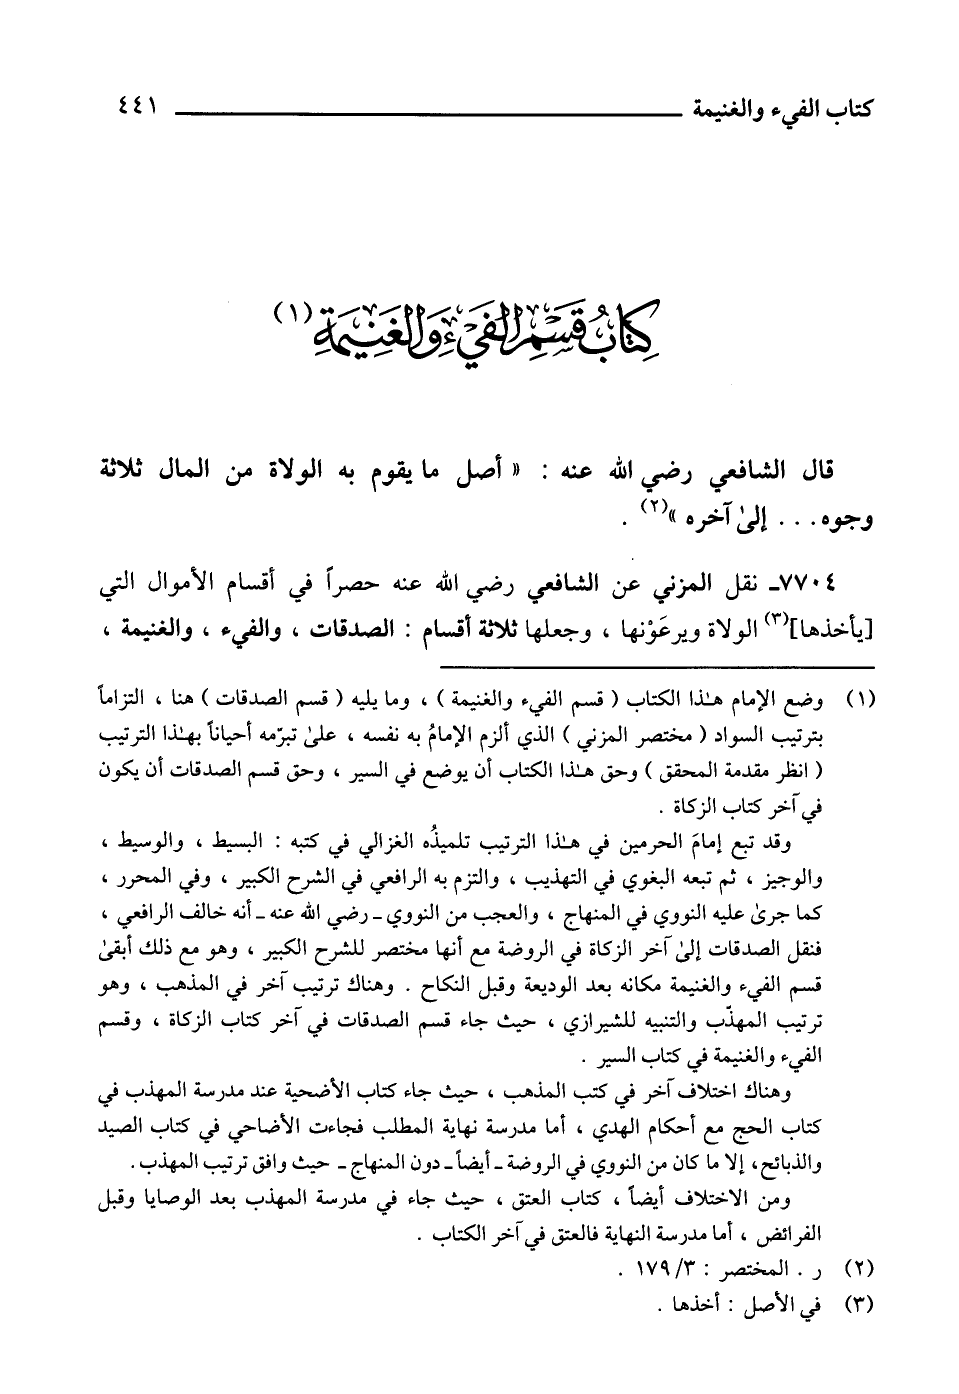 كتاب الفيء والغنيمة ٤٤١
كِتَابُ قَسْمِ الفَيْءِ وَالغَنِيمَةِ(١)
قال الشافعي رضي الله عنه : « أصل ما يقوم به الولاة من المال ثلاثة
وجوه . . . إلىٰ آخره »(٢) .
٧٧٠٤ـ نقل المزني عن الشافعي رضي الله عنه حصراً في أقسام الأموال التي
[يأخذها](٣) الولاة ويرعَوْنها ، وجعلها ثلاثة أقسام : الصدقات ، والفيء ، والغنيمة ،
(١) وضع الإمام هـٰذا الكتاب ( قسم الفيء والغنيمة ) ، وما يليه ( قسم الصدقات ) هنا ، التزاماً
بترتيب السواد ( مختصر المزني ) الذي ألزم الإمامُ به نفسه ، علىٰ تبرّمه أحياناً بهـٰذا الترتيب
( انظر مقدمة المحقق ) وحق هـٰذا الكتاب أن يوضع في السير ، وحق قسم الصدقات أن يكون
في آخر كتاب الزكاة .
وقد تبع إمامَ الحرمين في هـٰذا الترتيب تلميذُه الغزالي في كتبه : البسيط ، والوسيط ،
والوجيز ، ثم تبعه البغوي في التهذيب ، والتزم به الرافعي في الشرح الكبير ، وفي المحرر ،
كما جرىٰ عليه النووي في المنهاج ، والعجب من النووي ـ رضي الله عنه ـ أنه خالف الرافعي ،
فنقل الصدقات إلىٰ آخر الزكاة في الروضة مع أنها مختصر للشرح الكبير ، وهو مع ذلك أبقىٰ
قسم الفيء والغنيمة مكانه بعد الوديعة وقبل النكاح . وهناك ترتيب آخر في المذهب ، وهو
ترتيب المهذّب والتنبيه للشيرازي ، حيث جاء قسم الصدقات في آخر كتاب الزكاة ، وقسم
الفيء والغنيمة في كتاب السير .
وهناك اختلاف آخر في كتب المذهب ، حيث جاء كتاب الأضحية عند مدرسة المهذب في
كتاب الحج مع أحكام الهدي ، أما مدرسة نهاية المطلب فجاءت الأضاحي في كتاب الصيد
والذبائح، إلا ما كان من النووي في الروضة ـ أيضاً ـ دون المنهاج ـ حيث وافق ترتيب المهذب .
ومن الاختلاف أيضاً ، كتاب العتق ، حيث جاء في مدرسة المهذب بعد الوصايا وقبل
الفرائض ، أما مدرسة النهاية فالعتق في آخر الكتاب .
(٢) ر . المختصر : ٣/ ١٧٩ .
(٣) في الأصل : أخذها .